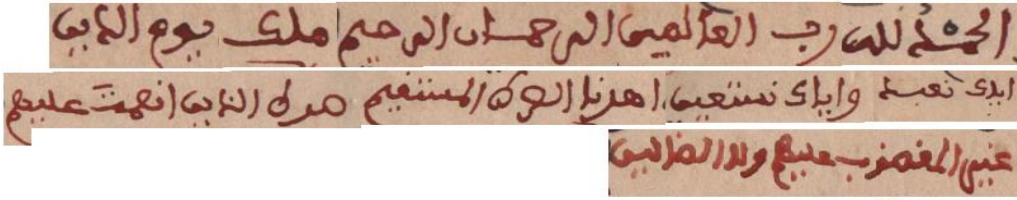 الحمد لله رب العالمين الرحمان الرحيم ملك يوم الدين
اياك نعبد واياك نستعين اهدنا الصراط المستقيم صراط الذين انعمت عليهم
غير المغضوب عليهم ولا الضالين